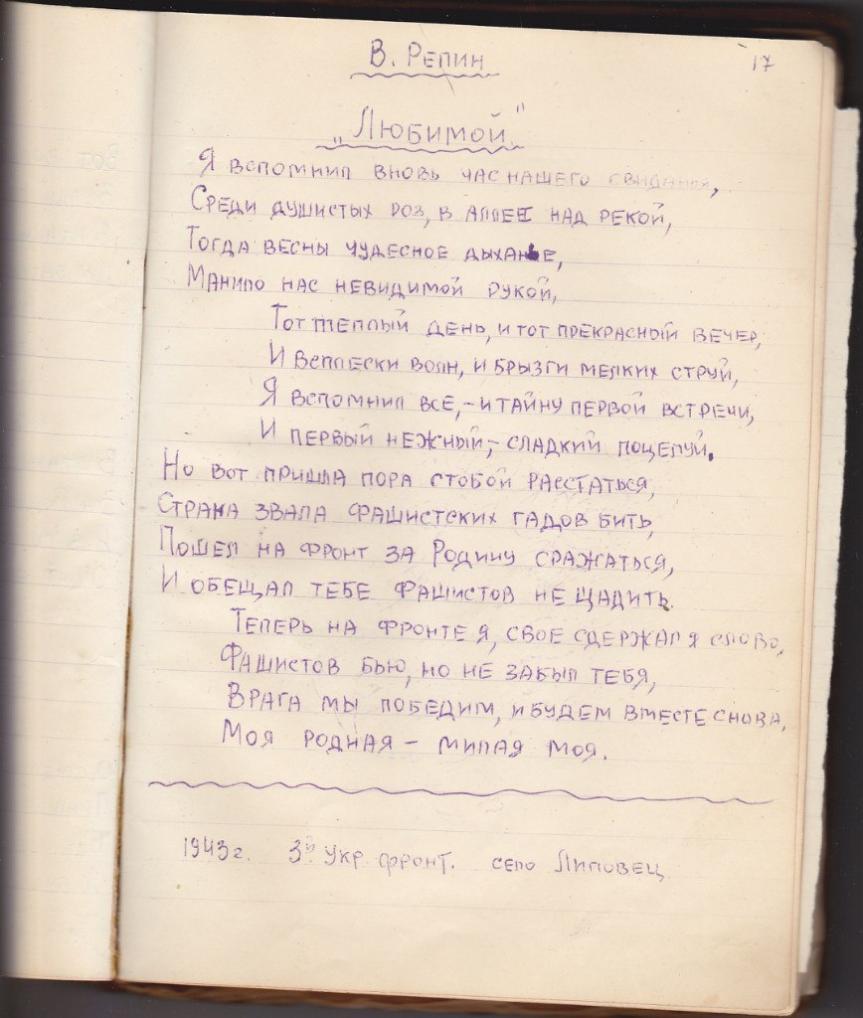 В. Репин
17
„Любимой"
Я вспомнил вновь час нашего свиданья,
Среди душистых роз, в аллее над рекой,
Тогда весны чудесное дыханье,
Манило нас невидимой рукой,
Тот теплый день, и тот прекрасный вечер,
И всплески волн, и брызги мелких струй,
Я вспомнил все,- и тайну первой встречи,
И первый нежный,- сладкий поцелуй.
Но вот пришла пора стобой расстаться,
Страна звала фашистских гадов бить,
Пошел на фронт за Родину сражаться,
И обещал тебе фашистов не щадить.
Теперь на фронте я, свое сдержал я слово,
Фашистов бью, но не забыл тебя,
Врага мы победим, и будем вместе снова,
Моя родная – милая моя.
1943 г. 3й Укр. фронт. село Липовец